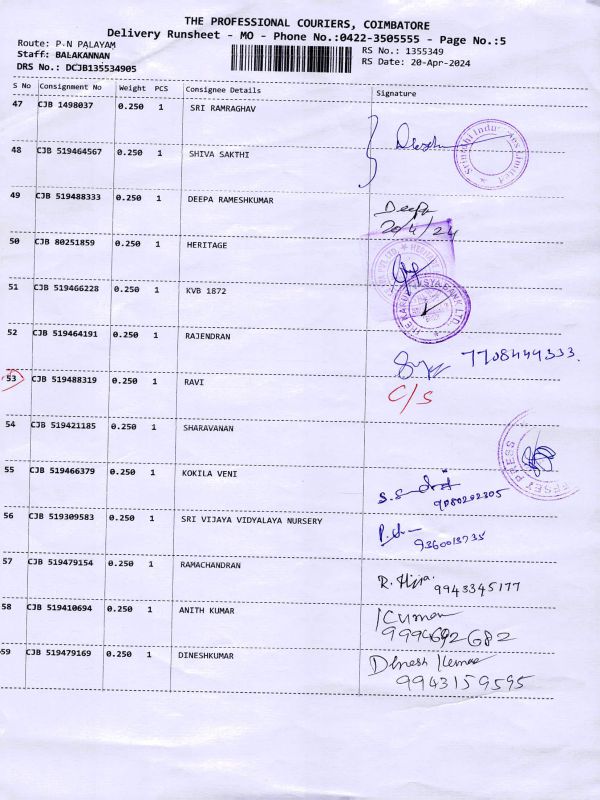 THE PROFESSIONAL COURIERS, COIMBATORE
Delivery Runsheet - MO - Phone No.:0422-3505555 - Page No.:5
Route: P-N PALAYAM
RS No.: 1355349
Staff: BALAKANNAN
RS Date: 20-Apr-2024
DRS No.: DCJB135534905
S No Consignment No Weight PCS Consignee Details Signature
47 CJB 1498037 0.250 1 SRI RAMRAGHAV
48 CJB 519464567 0.250 1 SHIVA SAKTHI
49 CJB 519488333 0.250 1 DEEPA RAMESHKUMAR Deepa
20/4/24
50 CJB 80251859 0.250 1 HERITAGE
51 CJB 519466228 0.250 1 KVB 1872
52 CJB 519464191 0.250 1 RAJENDRAN 7708444333.
53 CJB 519488319 0.250 1 RAVI C/S
54 CJB 519421185 0.250 1 SHARAVANAN
55 CJB 519466379 0.250 1 KOKILA VENI
9080202305
56 CJB 519309583 0.250 1 SRI VIJAYA VIDYALAYA NURSERY
9360013735
57 CJB 519479154 0.250 1 RAMACHANDRAN 9943345177
58 CJB 519410694 0.250 1 ANITH KUMAR Kumar
9994692682
59 CJB 519479169 0.250 1 DINESHKUMAR Dinesh Kumar
9943159595